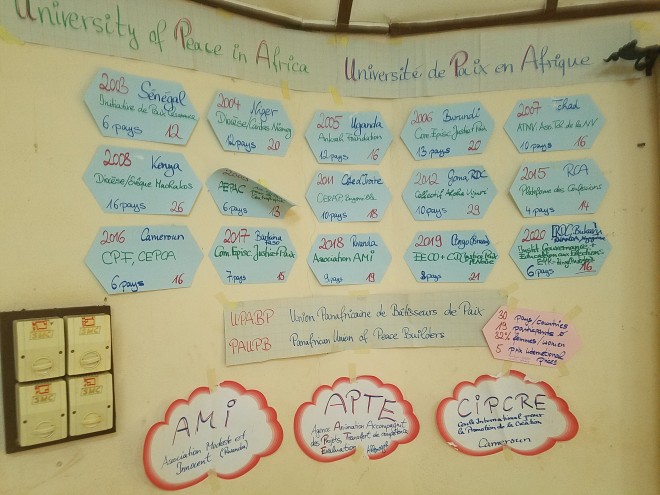 University of Peace in Africa
Université de Paix en Afrique
2003 Sénégal
Initiative de Paix
6 pays 12
2004 Niger
Diocèse/Caritas Niamey
12 pays 20
2005 Uganda
Ankrah Foundation
12 pays 16
2006 Burundi
Com. Episc. Justice & Paix
13 pays 20
2007 Tchad
ATNV
10 pays 16
2008 Kenya
Diocèse/Evêque Machakos
16 pays 26
AEPAC
6 pays 13
2011 Côte d'Ivoire
CERAP
10 pays 18
2012 Goma, RDC
Collectif Alpha Ujuvi
10 pays 29
2015 RCA
Plateforme des Confessions
4 pays 14
2016 Cameroun
CPF, CEPCA
6 pays 16
2017 Burkina Faso
Com. Episc. Justice & Paix
7 pays 15
2018 Rwanda
Association AMI
9 pays 19
2019
EECO +
8 pays 21
2020 RDC, Bukavu
6 pays 16
UPABP Union Panafricaine de Bâtisseurs de Paix
PAUPB Panafrican Union of Peace Builders
30 pays/countries
19 participants
32% femmes/women
5 prix international
prizes
AMI
Association Modeste et
Innocent (Rwanda)
APTE
Agence Animation Accompagnt
des Projets, Transfert de compétence
Evaluation
CIPCRE
Cercle International pour
la Promotion de la Création
Cameroun